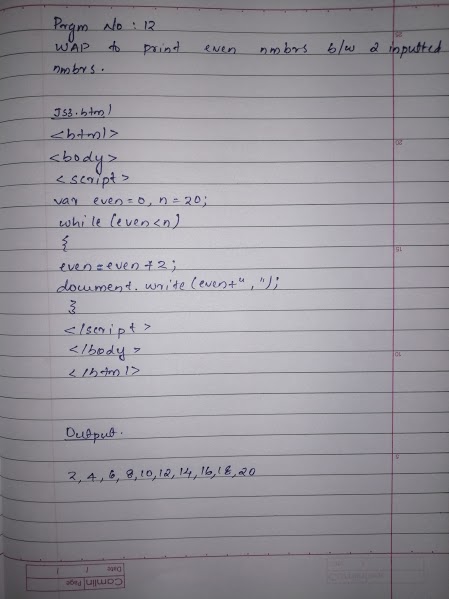 Prgm No : 12
WAP to print even nmbrs b/w 2 inputted
nmbrs.
JS3.html
<html>
<body>
<script>
var even=0, n=20;
while (even<n)
{
even=even+2;
document.write(even+" , ");
}
</script>
</body>
</html>
Output.
2, 4, 6, 8, 10, 12, 14, 16, 18, 20
Camlin Page
Date / /